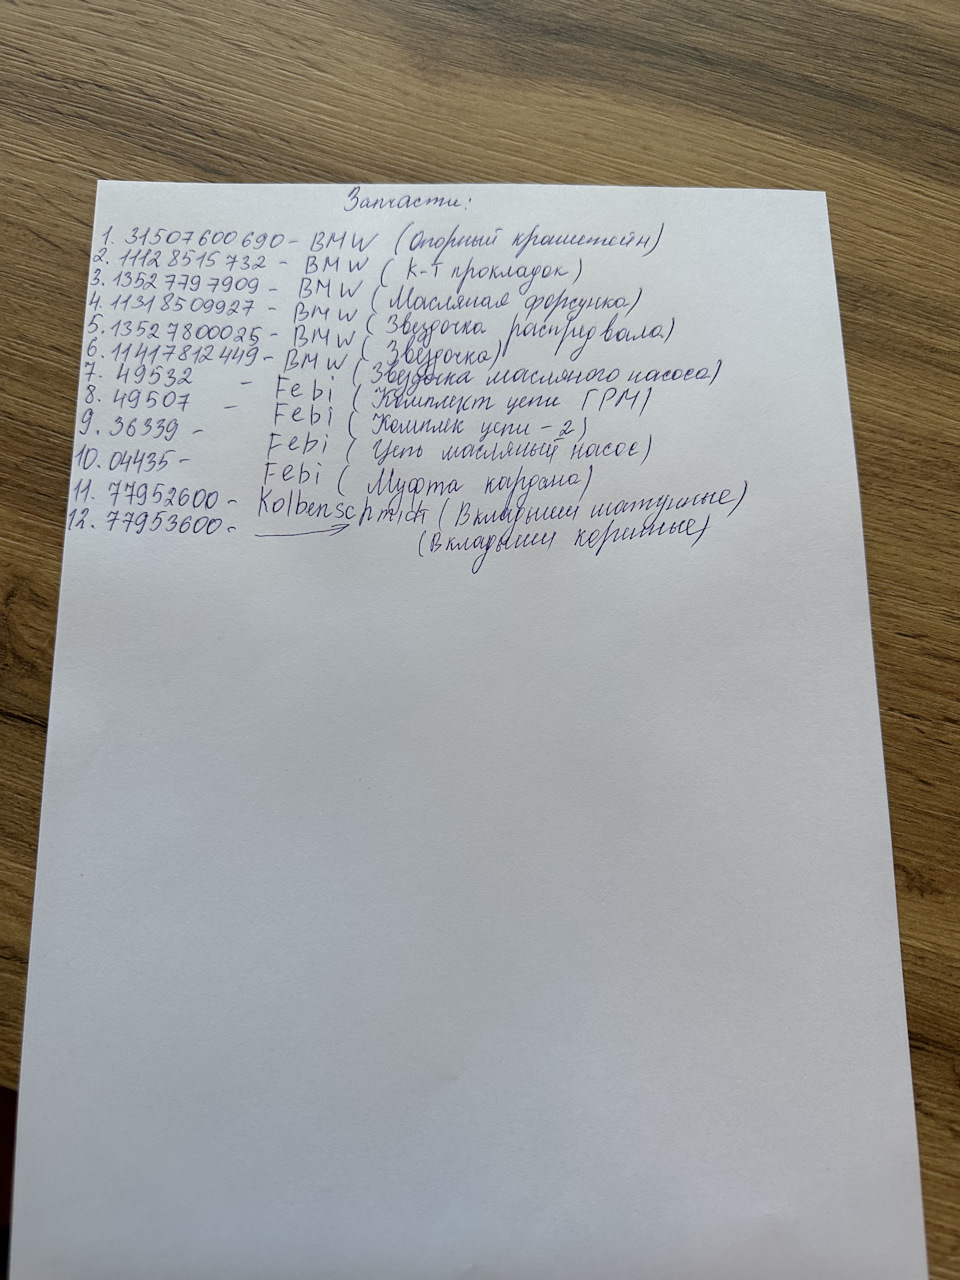 Запчасти:
1. 31507600690 - BMW (Опорный кронштейн)
2. 11128515732 - BMW (к-т прокладок)
3. 13527797909 - BMW (Масляная форсунка)
4. 11318509927 - BMW (Звездочка распредвала)
5. 13527800025 - BMW (Звездочка)
6. 11417812449 - BMW (Звездочка масляного насоса)
7. 49532 - Febi (Комплект цепи ГРМ)
8. 49507 - Febi (Комплек цепи - 2)
9. 36339 - Febi (Цепь масляный насос)
10. 04435 - Febi (Муфта кардана)
11. 77952600 - Kolbenschmidt (Вкладыши шатунные)
12. 77953600 - → (Вкладыши коренные)